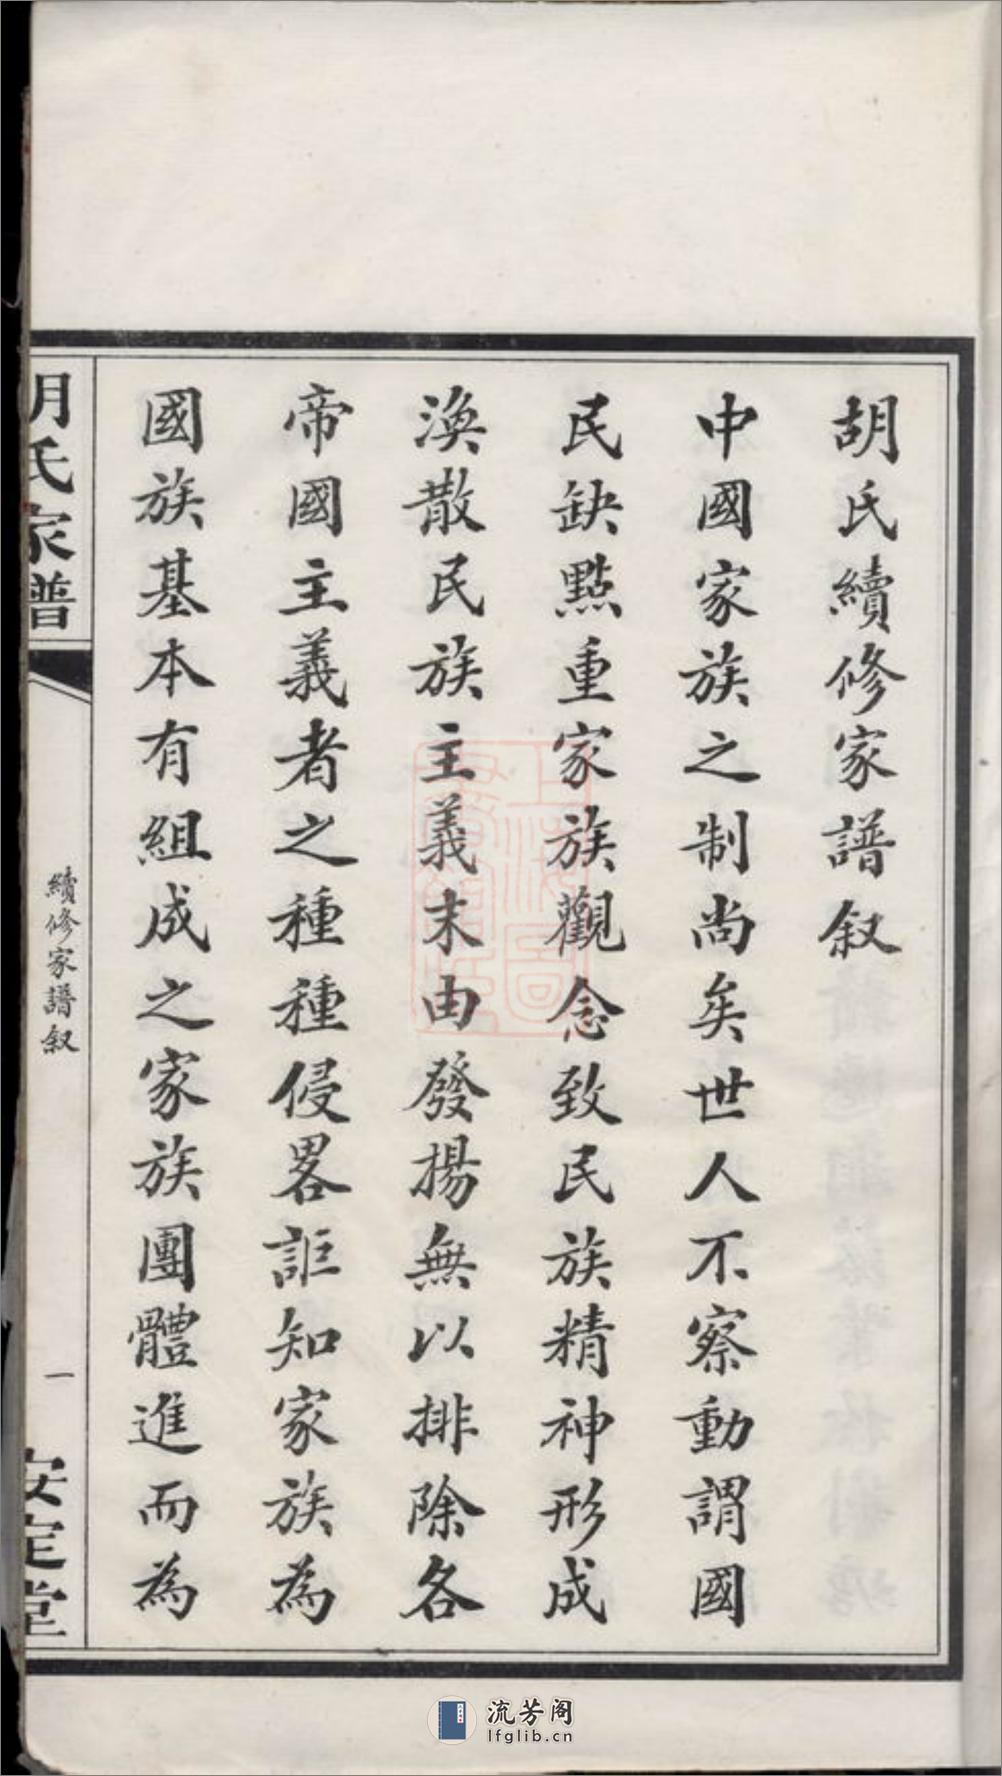 胡氏續修家譜叙
中國家族之制尚矣世人不察動謂國
民缺點重家族觀念致民族精神形成
渙散民族主義末由發揚無以排除各
帝國主義者之種種侵畧詎知家族為
國族基本有組成之家族團體進而為
胡氏家譜
續修家譜叙
一
安定堂
流芳阁
lfglib.cn